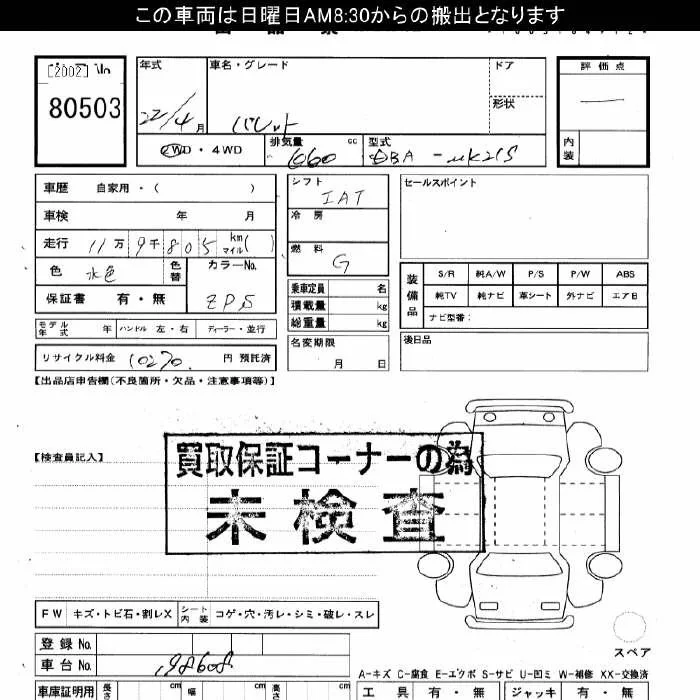 この車両は日曜日AM8:30からの搬出となります
[2002] No
80503
年式
22/4月
車名・グレード
パレット
ドア
形状
評価点
内装
2WD・4WD
排気量 660 cc
型式 DBA-MK21S
車歴 自家用・( )
車検 年 月
走行 11万9千805 km マイル( )
色 水色 色替
カラーNo. ZPS
保証書 有・無
シフト IAT
冷房
燃料 G
乗車定員 名
積載量 kg
総重量 kg
名変期限 月 日
セールスポイント
装備品
S/R 純A/W P/S P/W ABS
純TV 純ナビ 革シート 外ナビ エアB
ナビ型番:
後日品
モデル年式 年 ハンドル 左・右 ディーラー・並行
リサイクル料金 10270 円 預託済
【出品店申告欄(不良箇所・欠品・注意事項等)】
【検査員記入】
買取保証コーナーの為
未検査
FW キズ・トビ石・割レX シート内装 コゲ・穴・汚レ・シミ・破レ・スレ
スペア
登録No.
車台No. 198608
A-キズ C-腐食 E-エクボ S-サビ U-凹ミ W-補修 XX-交換済
車庫証明用 長さ cm 幅 cm 高さ cm
工具 有・無 ジャッキ 有・無